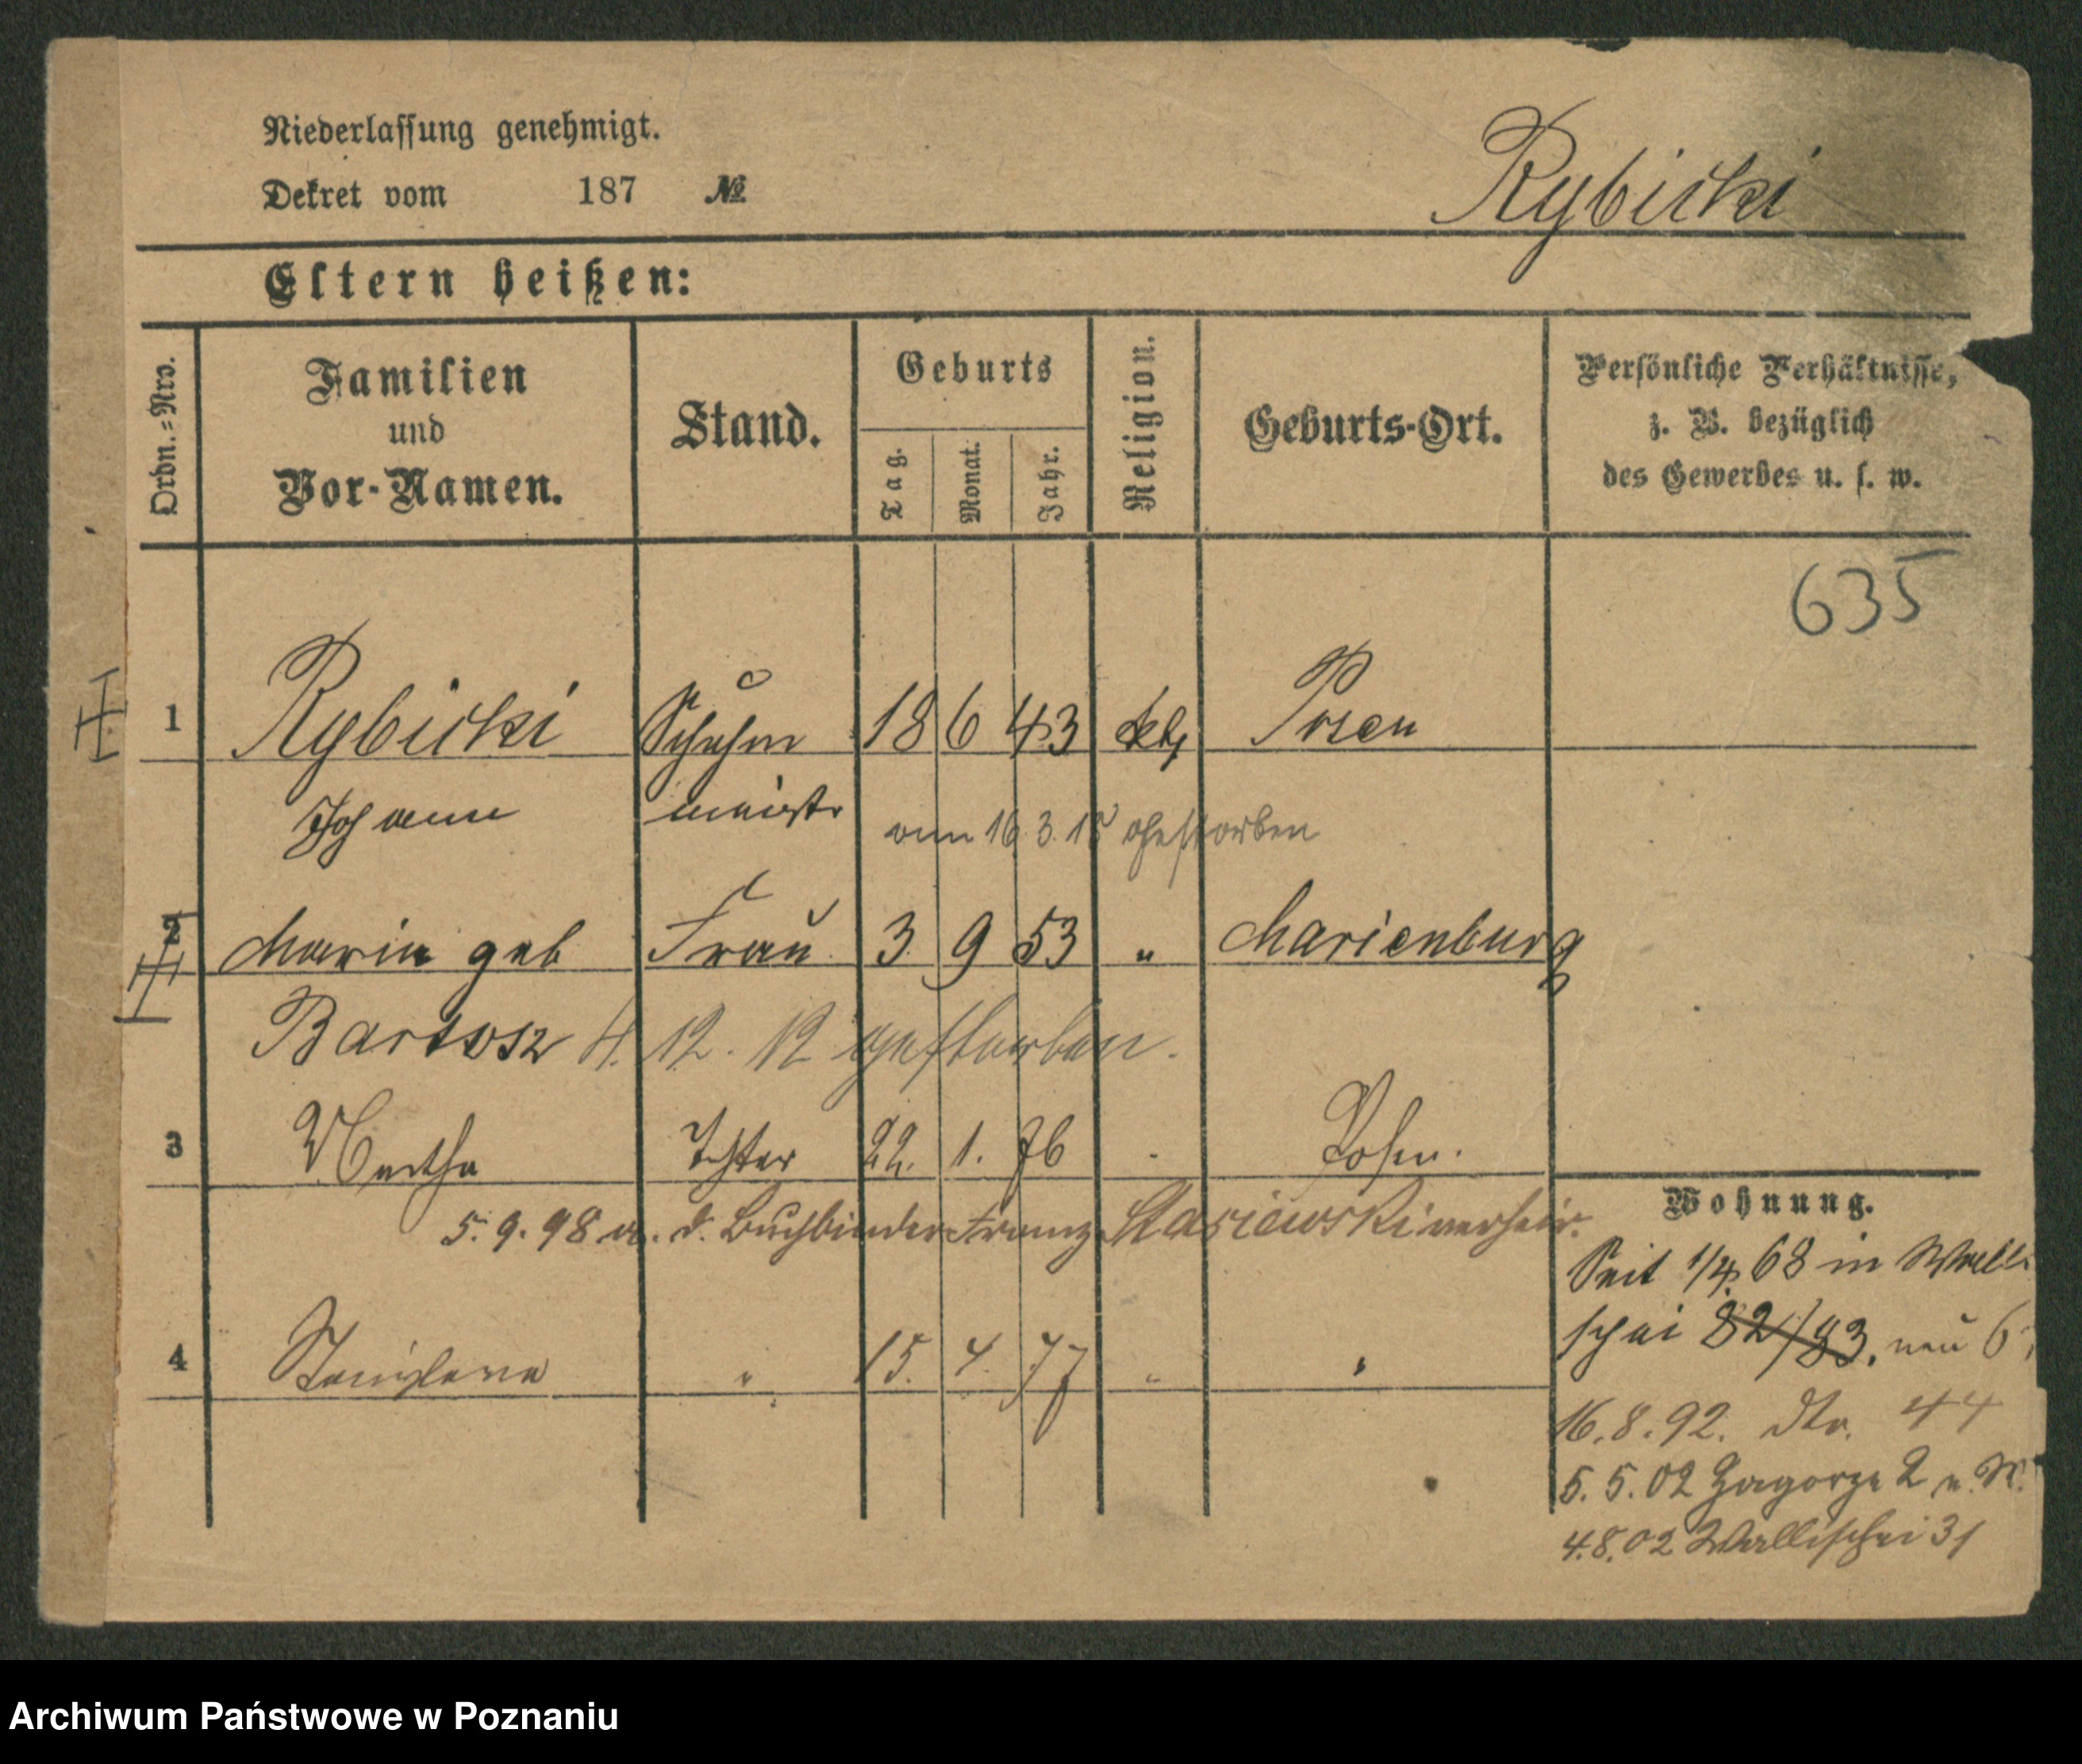 Niederlassung genehmigt.
Dekret vom 187 №
Rybicki
Eltern heißen:
Ordn.=Nro.
Familien
und
Vor-Namen.
Stand.
Geburts
Tag.
Monat.
Jahr.
Religion.
Geburts-Ort.
Persönliche Verhältnisse,
z. B. bezüglich
des Gewerbes u. s. w.
635
1 Rybicki Schuhm 18 6 43 kth Posen
Johann meistr
am 16 3. 15 gestorben
2 Maria geb Frau 3 9 53 " Marienburg
Bartosz 4. 12. 12 gestorben.
3 Martha Tchter 22. 1. 76 Posen.
5. 9. 98 m. d. Buchbinder Franz Stasiewski verheir.
4 Stanislawa " 15. 4. 77 " "
Wohnung.
Seit 1/4 68 in Walli
schei 82/83. neu 6
16. 8. 92. dto. 44
5. 5. 02 Zagorze 2
4. 8. 02 Wallischei 31
Archiwum Państwowe w Poznaniu